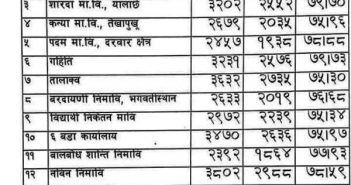 ३ शारदा मा.वि., थालाछे ३२०२ २५५२ ७९।७०
४ कन्या मा.वि., तेखापुखु २६७९ २०३५ ७५।९६
५ पदम मा.वि., दरवार क्षेत्र २४५७ १९३८ ७८।८८
६ गहिति ३२३१ २५७६ ७९।७३
७ तालाक्व ३६३२ २७३५ ७५।३०
८ बरदायणी निमावि, भगवतीस्थान २६३३ २०१९ ७६।६८
९ विद्यार्थी निकेतन मावि २९७२ २२३९ ७५।३४
१० ६ वडा कार्यालय ३४७० २६३६ ७५।९७
११ बालबोध शान्ति निमावि २३९२ १८६४ ७७।९३
१२ नविन निमावि ३८०२ २९८८ ७८।५९